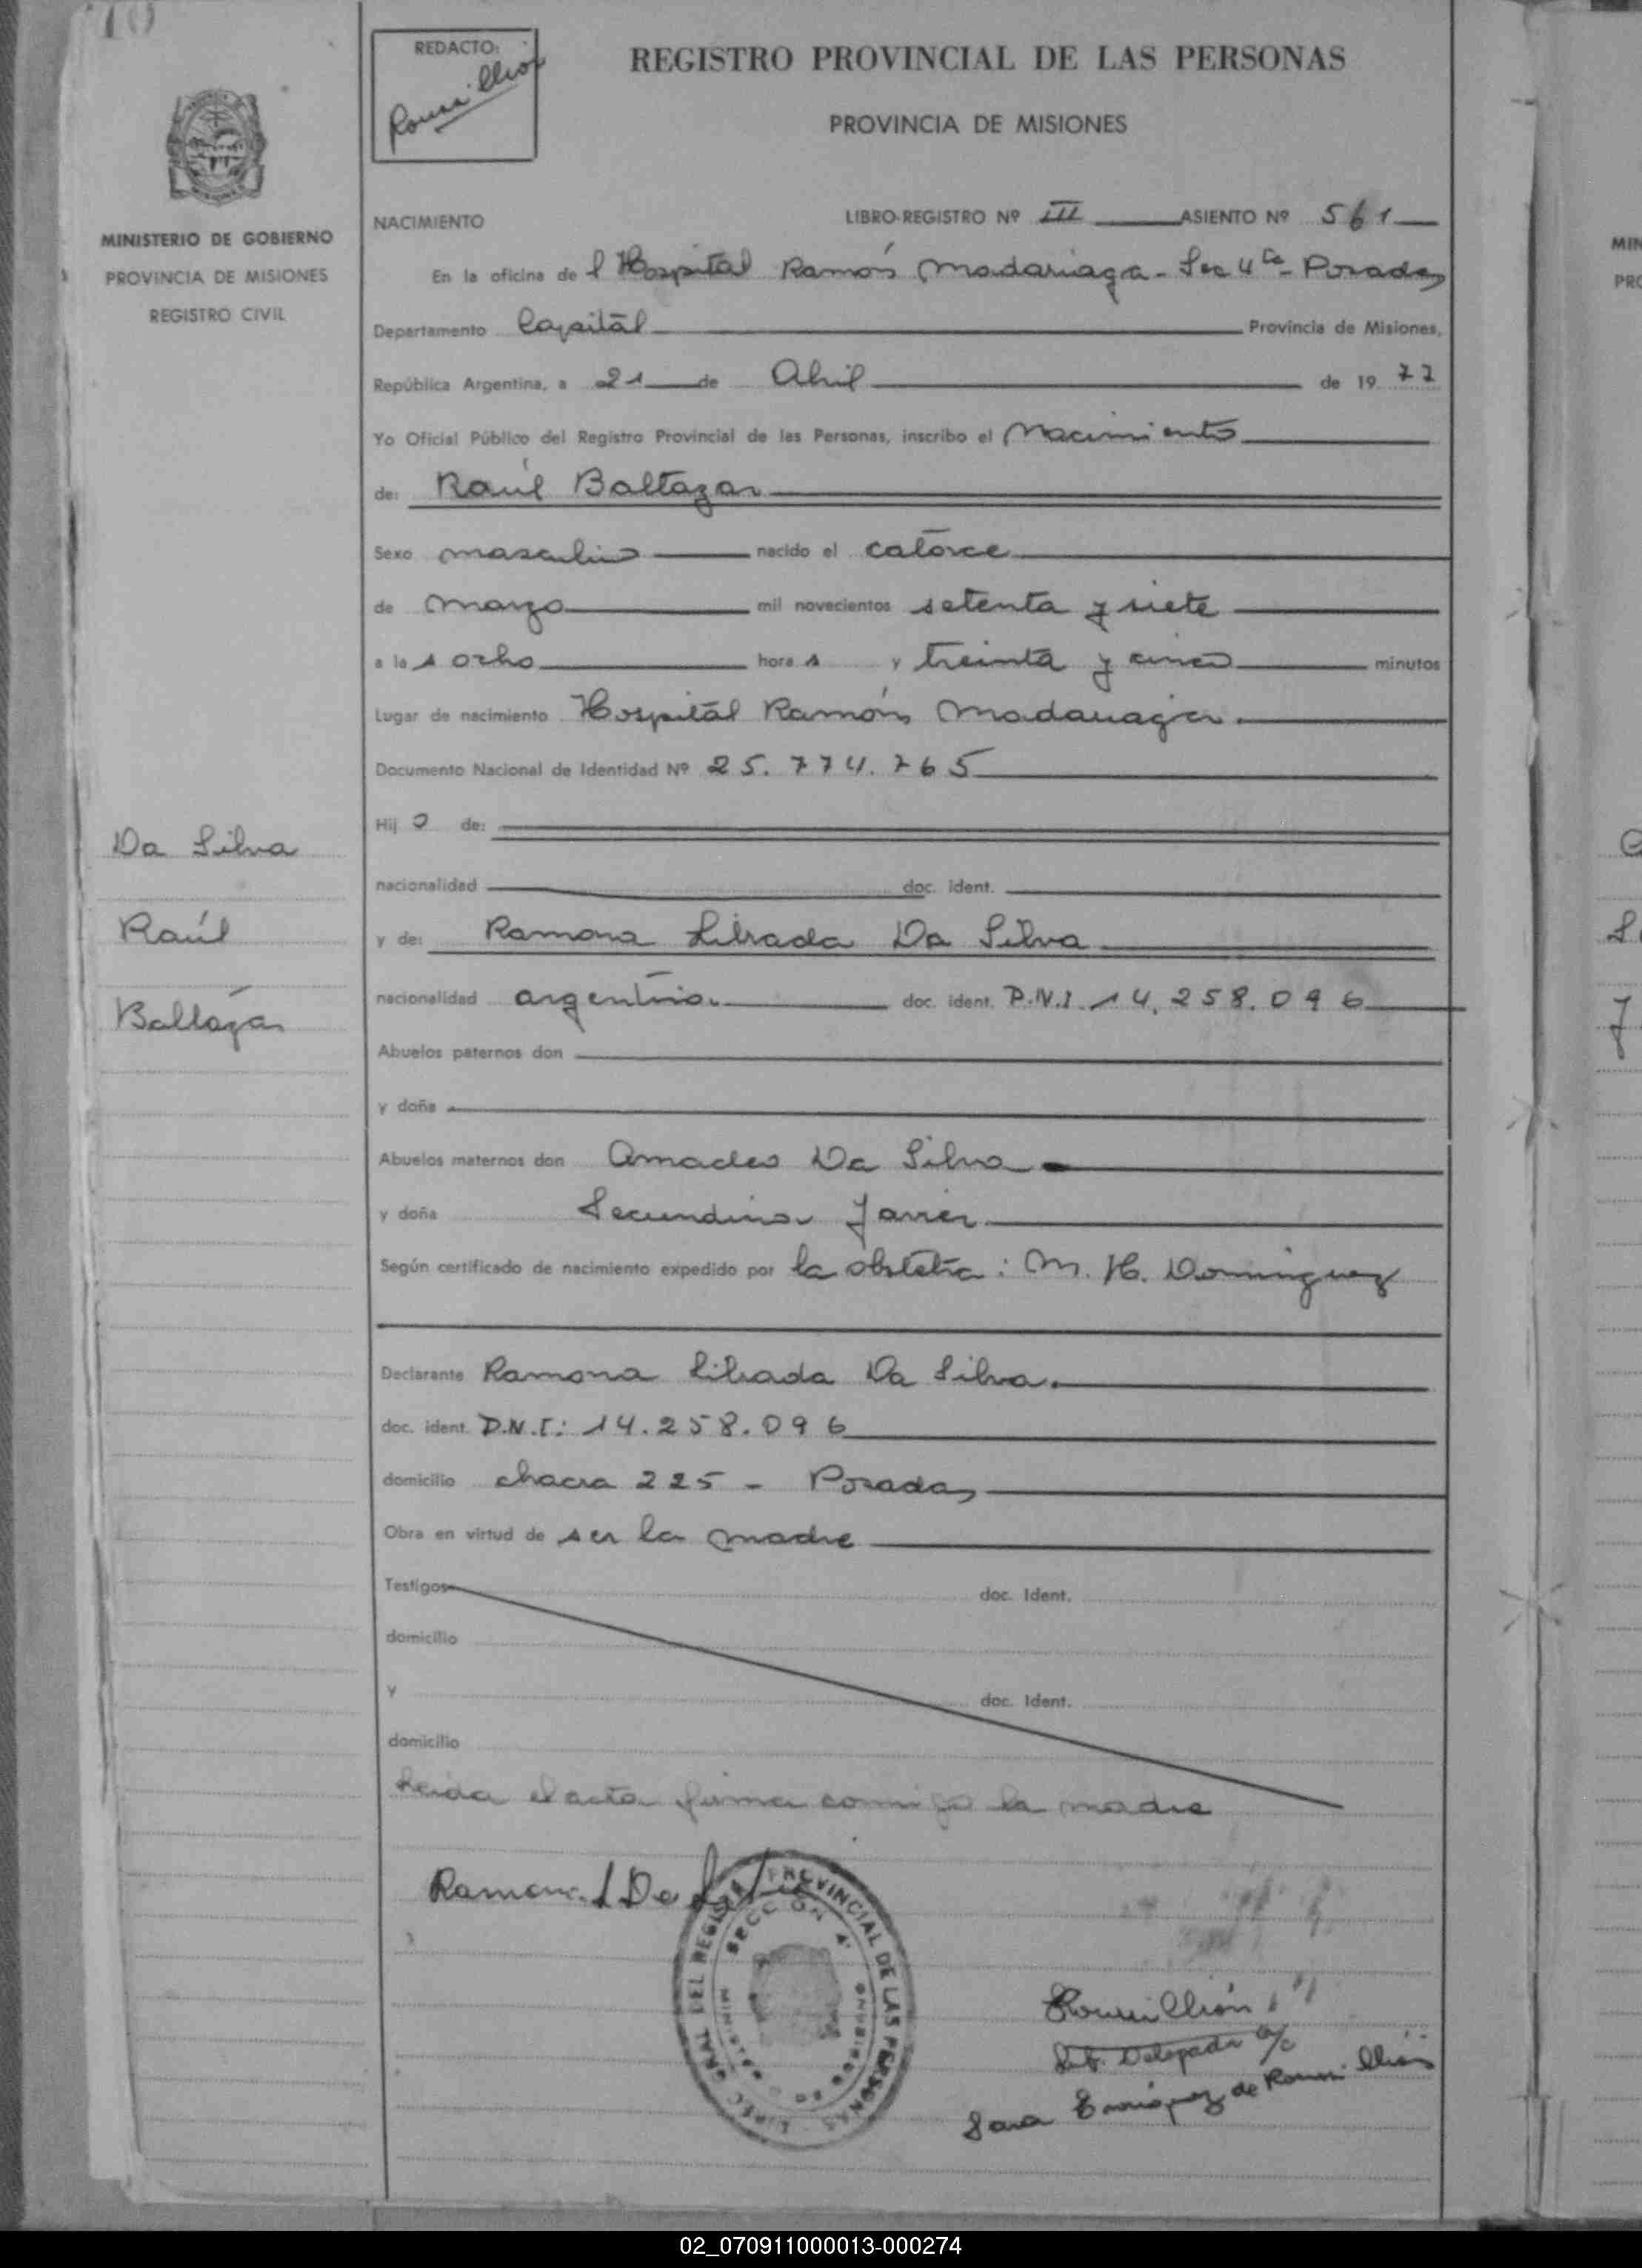 REDACTO:
Roussillion
REGISTRO PROVINCIAL DE LAS PERSONAS
PROVINCIA DE MISIONES
MINISTERIO DE GOBIERNO
PROVINCIA DE MISIONES
REGISTRO CIVIL
NACIMIENTO LIBRO-REGISTRO Nº III ASIENTO Nº 561
En la oficina del Hospital Ramón Madariaga - Sec 4ta - Posadas
Departamento Capital Provincia de Misiones,
República Argentina, a 21 de Abril de 1977
Yo Oficial Público del Registro Provincial de las Personas, inscribo el Nacimiento
de: Raúl Baltazar
Sexo masculino nacido el catorce
de marzo mil novecientos setenta y siete
a las ocho horas y treinta y cinco minutos
Lugar de nacimiento Hospital Ramón Madariaga.
Documento Nacional de Identidad Nº 25.774.765
Hijo de:
nacionalidad doc. ident.
y de: Ramona Librada Da Silva
nacionalidad argentina doc. ident. D.N.I. 14.258.096
Abuelos paternos don
y doña
Abuelos maternos don Amadeo Da Silva
y doña Secundina Javier
Según certificado de nacimiento expedido por la obstetra: M. H. Dominguez
Declarante Ramona Librada Da Silva.
doc. ident. D.N.I: 14.258.096
domicilio chacra 225 - Posadas
Obra en virtud de ser la madre
Testigos doc. Ident.
domicilio
y doc. Ident.
domicilio
Leida el acta firma conmigo la madre
Ramona L Da Silva
DIREC. GRAL. DEL REGISTRO PROVINCIAL DE LAS PERSONAS
SECCION 4ª
Roussillión
Sub. Delegada a/c
Sara Enriquez de Roussillión
Da Silva
Raúl
Baltazar
02_070911000013-000274